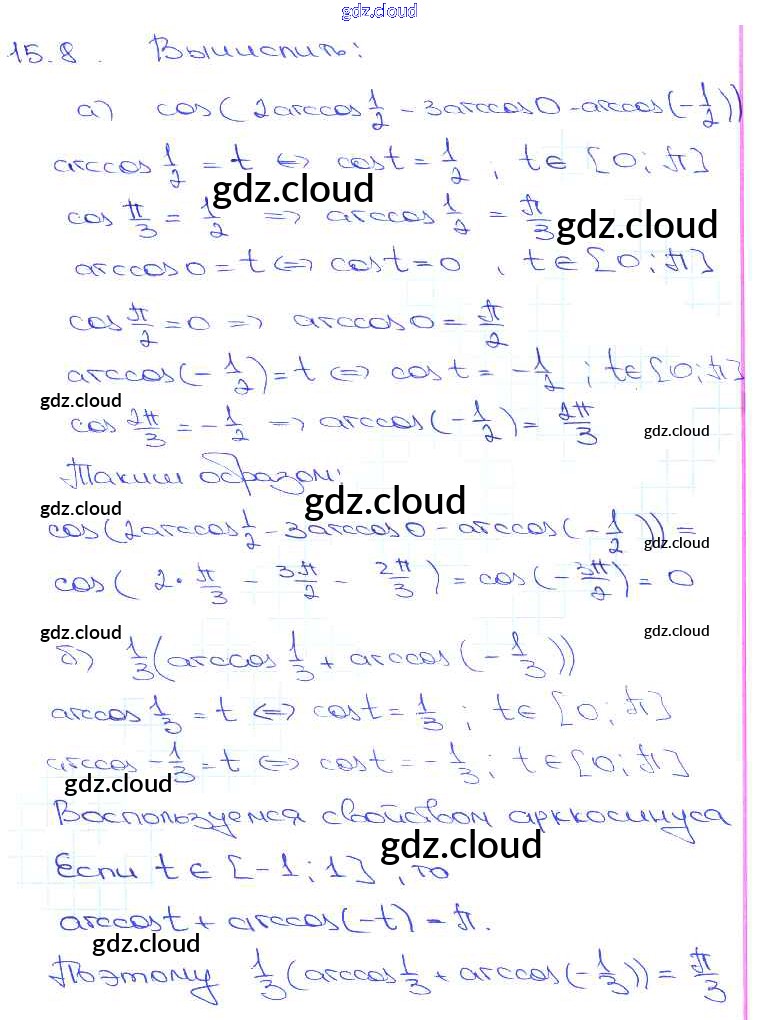 gdz.cloud
15.8. Вычислить:
а) cos(2arccos 1/2 - 3arccos 0 - arccos(-1/2))
arccos 1/2 = t ⇔ cos t = 1/2 ; t ∈ [0; π]
gdz.cloud
cos π/3 = 1/2 => arccos 1/2 = π/3
gdz.cloud
arccos 0 = t ⇔ cos t = 0 , t ∈ [0; π]
cos π/2 = 0 => arccos 0 = π/2
arccos(-1/2) = t ⇔ cos t = -1/2 ; t ∈ [0; π]
gdz.cloud
cos 2π/3 = -1/2 => arccos(-1/2) = 2π/3
gdz.cloud
Таким образом:
gdz.cloud gdz.cloud
cos(2arccos 1/2 - 3arccos 0 - arccos(-1/2)) =
gdz.cloud
cos(2·π/3 - 3π/2 - 2π/3) = cos(-3π/2) = 0
gdz.cloud gdz.cloud
б) 1/3(arccos 1/3 + arccos(-1/3))
arccos 1/3 = t ⇔ cos t = 1/3 ; t ∈ [0; π]
arccos -1/3 = t ⇔ cos t = -1/3 ; t ∈ [0; π]
gdz.cloud
Воспользуемся свойством арккосинуса
gdz.cloud
Если t ∈ [-1; 1] , то
arccos t + arccos(-t) = π.
gdz.cloud
Поэтому 1/3(arccos 1/3 + arccos(-1/3)) = π/3